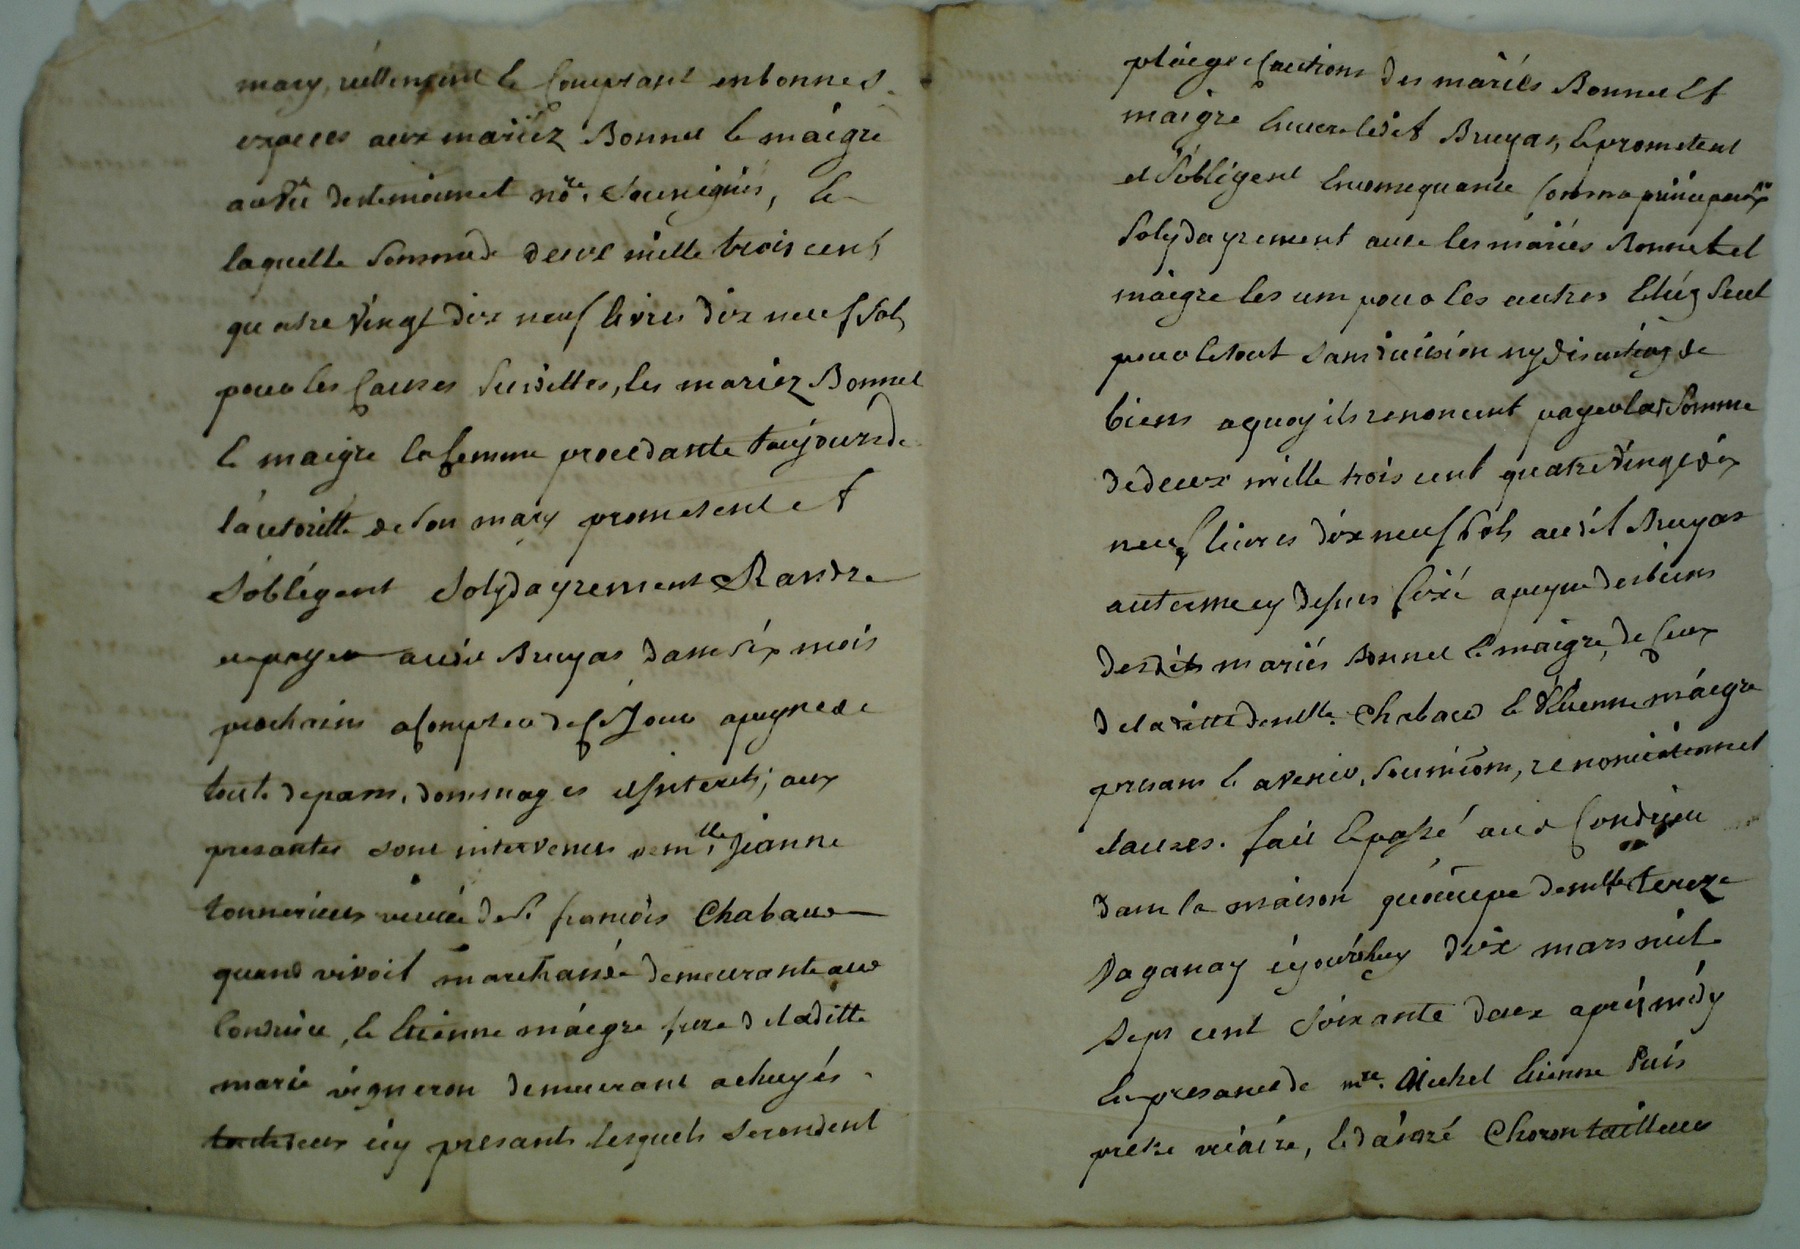 mary, réellement & Comptant en bonnes
expeces aux mariez Bonnet & maigre
au vû desd. temoins et nore. Sousignés, &
laquelle Somme de deux mille trois cent
quatre vingt dix neuf livres dix neuf sols
pour les Causes Susdittes, les mariez Bonnet
& maigre la femme procedante toujours de
l'autoritté de son mary prometent et
s'obligent Solydayrement Randre
et payer audit Bruyas dans six mois
prochains a Compter de ce Jour a peyne de
touts depans, dommages et Interets; aux
presantes sont intervenus demlle. Jeanne
tonnerieux veuve de sr. francois Chabaud
quand vivoit marchand demeurante aud
Condrieu, & Etienne maigre frere de laditte
marie vigneron demeurant a chuyés
icy presants lesquels se rendent
pleiges Cautions des mariés Bonnet Et
maigre Envers ledit Bruyas, & prometent
et s'obligent En consequance Comme principaux
Solydayrement avec les mariés Bonnet et
maigre les uns pour les autres & chúg Seul
pour le tout sans division ny discution de
biens a quoy ils renoncent payer lad. Somme
de deux mille trois cent quatre vingt dix
neuf livres dix neuf sols audit Bruyas
au terme cy dessus fixé a peyne des biens
desdits mariés Bonnet & maigre, de Ceux
de laditte demlle. Chabaud & Etienne maigre
presans & avenir, soumitions, renonciations et
clauses. fait & passé aud Condrieu
dans la maison qu'ocupe demlle tereze
paganay cejourd'huy dix mars mil
Sept cent soixante deux après midy
En presance de mre. Michel Etienne puis
pretre vicaire, & d'andré Choron tailleur